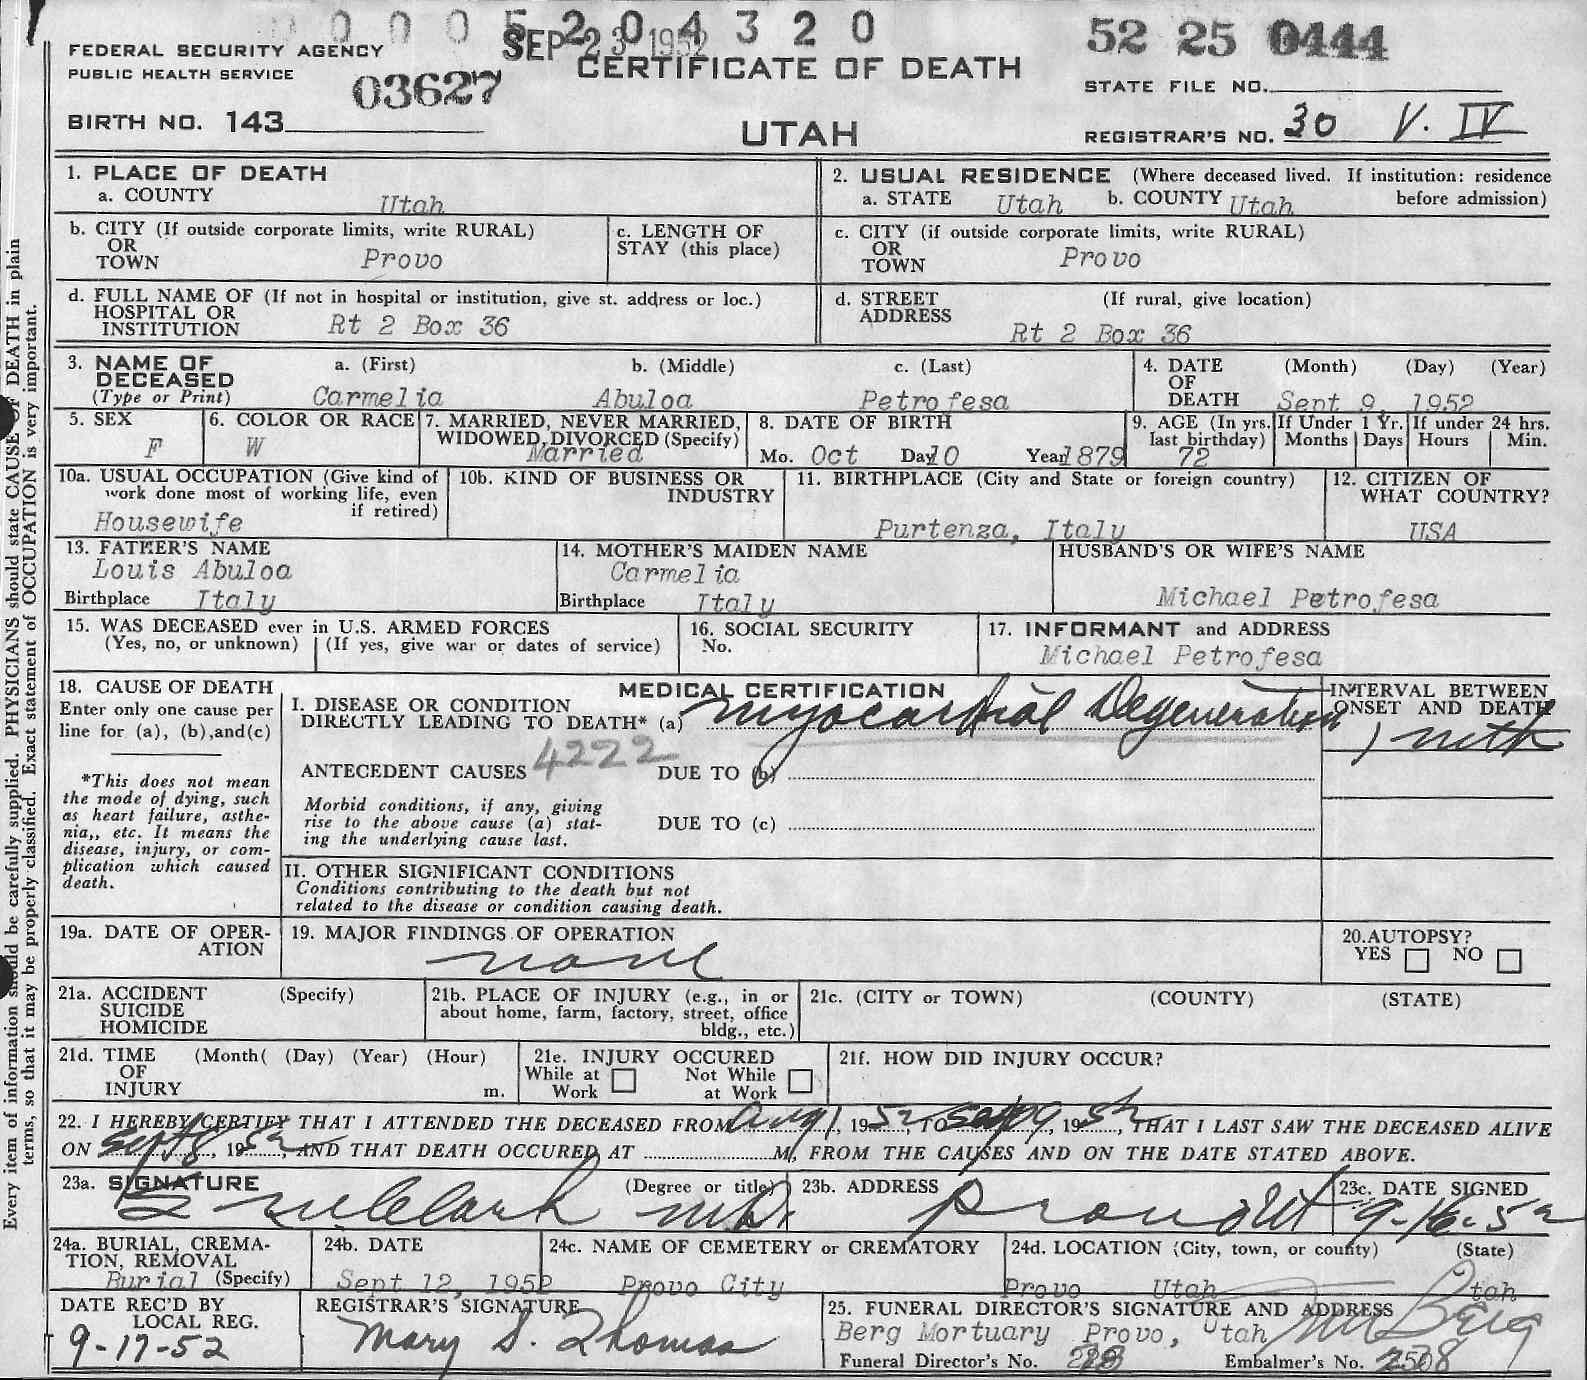 0 0 0 5 2 0 4 3 2 0
SEP 23 1952
52 25 0444
FEDERAL SECURITY AGENCY
PUBLIC HEALTH SERVICE
03627
CERTIFICATE OF DEATH
STATE FILE NO.
BIRTH NO. 143
UTAH
REGISTRAR'S NO. 30 V. IV
Every item of information should be carefully supplied. PHYSICIANS should state CAUSE OF DEATH in plain
terms, so that it may be properly classified. Exact statement of OCCUPATION is very important.
1. PLACE OF DEATH
a. COUNTY
Utah
2. USUAL RESIDENCE (Where deceased lived. If institution: residence
a. STATE Utah b. COUNTY Utah before admission)
b. CITY (If outside corporate limits, write RURAL)
OR
TOWN Provo
c. LENGTH OF
STAY (this place)
c. CITY (if outside corporate limits, write RURAL)
OR
TOWN Provo
d. FULL NAME OF (If not in hospital or institution, give st. address or loc.)
HOSPITAL OR
INSTITUTION Rt 2 Box 36
d. STREET (If rural, give location)
ADDRESS
Rt 2 Box 36
3. NAME OF a. (First) b. (Middle) c. (Last)
DECEASED
(Type or Print) Carmelia Abuloa Petrofesa
4. DATE (Month) (Day) (Year)
OF
DEATH Sept 9, 1952
5. SEX
F
6. COLOR OR RACE
W
7. MARRIED, NEVER MARRIED,
WIDOWED, DIVORCED (Specify)
Married
8. DATE OF BIRTH
Mo. Oct Day 10 Year 1879
9. AGE (In yrs. last birthday)
72
If Under 1 Yr.
Months Days
If under 24 hrs.
Hours Min.
10a. USUAL OCCUPATION (Give kind of
work done most of working life, even
if retired)
Housewife
10b. KIND OF BUSINESS OR
INDUSTRY
11. BIRTHPLACE (City and State or foreign country)
Purtenza, Italy
12. CITIZEN OF
WHAT COUNTRY?
USA
13. FATHER'S NAME
Louis Abuloa
Birthplace Italy
14. MOTHER'S MAIDEN NAME
Carmelia
Birthplace Italy
HUSBAND'S OR WIFE'S NAME
Michael Petrofesa
15. WAS DECEASED ever in U.S. ARMED FORCES
(Yes, no, or unknown) (If yes, give war or dates of service)
16. SOCIAL SECURITY
No.
17. INFORMANT and ADDRESS
Michael Petrofesa
18. CAUSE OF DEATH
Enter only one cause per
line for (a), (b), and (c)
*This does not mean
the mode of dying, such
as heart failure, asthe-
nia,, etc. It means the
disease, injury, or com-
plication which caused
death.
MEDICAL CERTIFICATION
I. DISEASE OR CONDITION
DIRECTLY LEADING TO DEATH* (a) Myocardial Degeneration
INTERVAL BETWEEN
ONSET AND DEATH
1 mth
ANTECEDENT CAUSES 4222 DUE TO (b)
Morbid conditions, if any, giving
rise to the above cause (a) stat-
ing the underlying cause last.
DUE TO (c)
II. OTHER SIGNIFICANT CONDITIONS
Conditions contributing to the death but not
related to the disease or condition causing death.
19a. DATE OF OPER-
ATION
19. MAJOR FINDINGS OF OPERATION
none
20. AUTOPSY?
YES NO
21a. ACCIDENT (Specify)
SUICIDE
HOMICIDE
21b. PLACE OF INJURY (e.g., in or
about home, farm, factory, street, office
bldg., etc.)
21c. (CITY or TOWN) (COUNTY) (STATE)
21d. TIME (Month( (Day) (Year) (Hour)
OF
INJURY m.
21e. INJURY OCCURED
While at Work Not While at Work
21f. HOW DID INJURY OCCUR?
22. I HEREBY CERTIFY THAT I ATTENDED THE DECEASED FROM Aug 1, 1952, TO Sept 9, 1952, THAT I LAST SAW THE DECEASED ALIVE
ON Sept 8, 1952, AND THAT DEATH OCCURED AT M, FROM THE CAUSES AND ON THE DATE STATED ABOVE.
23a. SIGNATURE (Degree or title)
Clark M.D.
23b. ADDRESS
Provo Ut
23c. DATE SIGNED
9-16-52
24a. BURIAL, CREMA-
TION, REMOVAL
Burial (Specify)
24b. DATE
Sept 12, 1952
24c. NAME OF CEMETERY or CREMATORY
Provo City
24d. LOCATION (City, town, or county) (State)
Provo Utah Utah
DATE REC'D BY
LOCAL REG.
9-17-52
REGISTRAR'S SIGNATURE
Mary S. Thomas
25. FUNERAL DIRECTOR'S SIGNATURE AND ADDRESS
Berg Mortuary Provo, Utah Berg
Funeral Director's No. Embalmer's No.